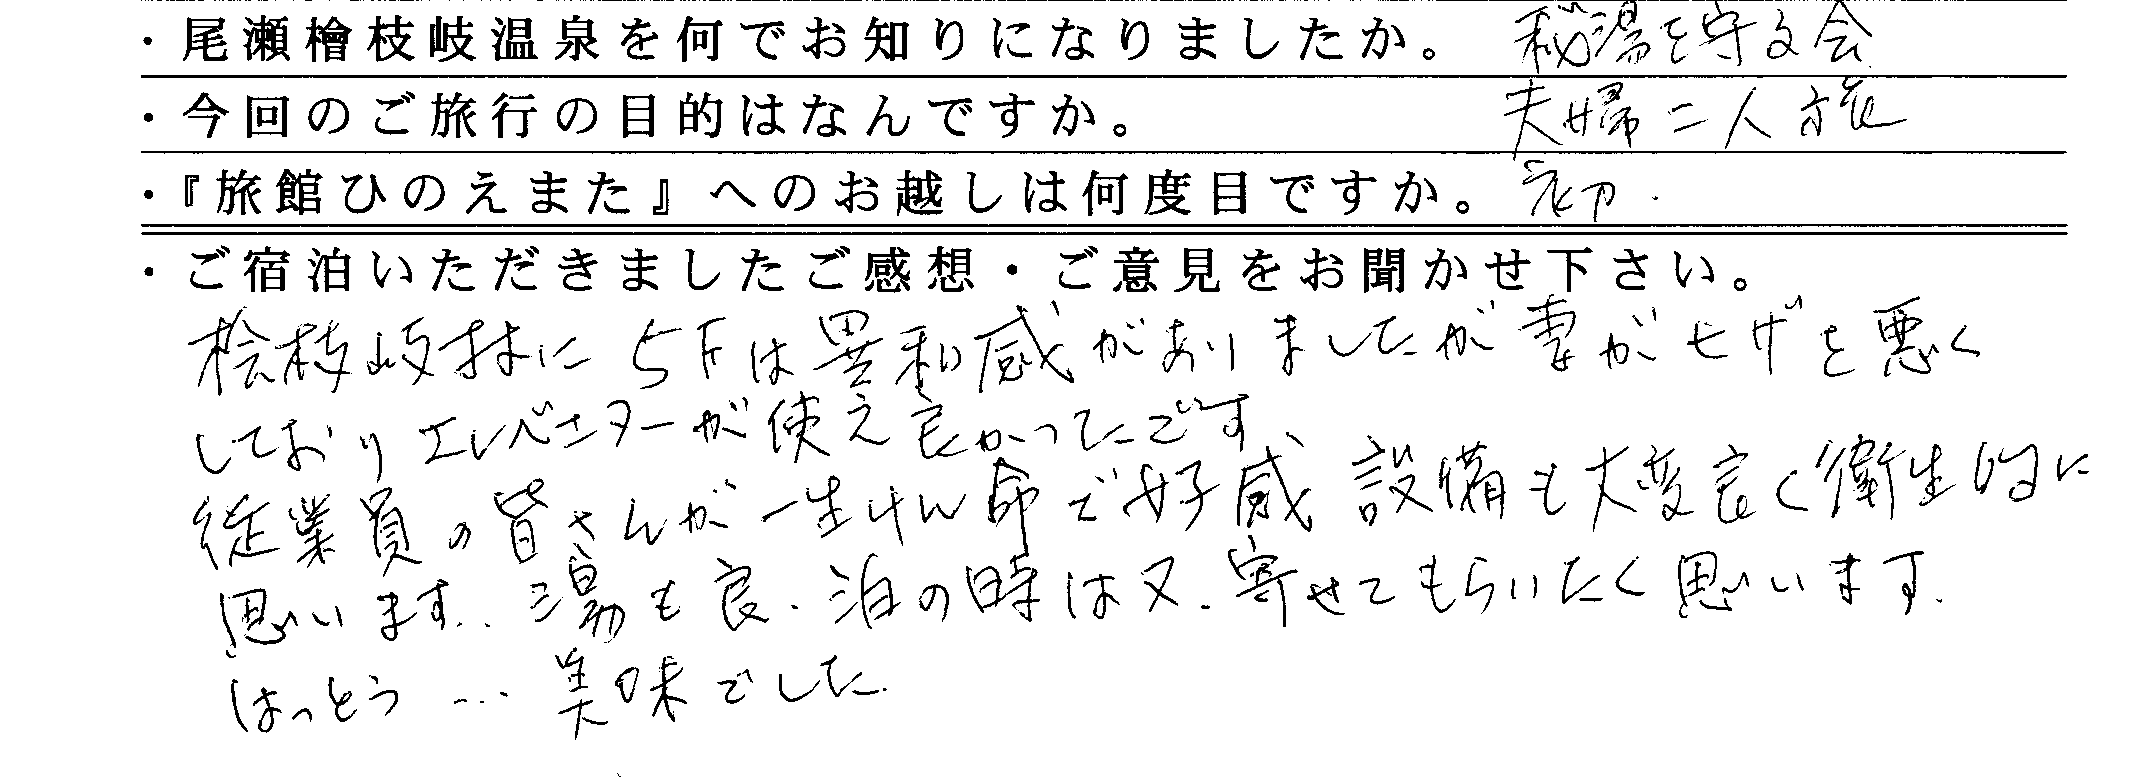 ・尾瀬檜枝岐温泉を何でお知りになりましたか。 秘湯を守る会
・今回のご旅行の目的はなんですか。 夫婦二人旅
・『旅館ひのえまた』へのお越しは何度目ですか。 初.
・ご宿泊いただきましたご感想・ご意見をお聞かせ下さい。
桧枝岐村に5Fは異和感がありましたが妻がヒザを悪く
しておりエレベーターが使え良かったです、
従業員の皆さんが一生けん命で好感 設備も大変良く衛生的に
思います.. 湯も良. 泊の時は又. 寄せてもらいたく思います.
はっとう… 美味でした.